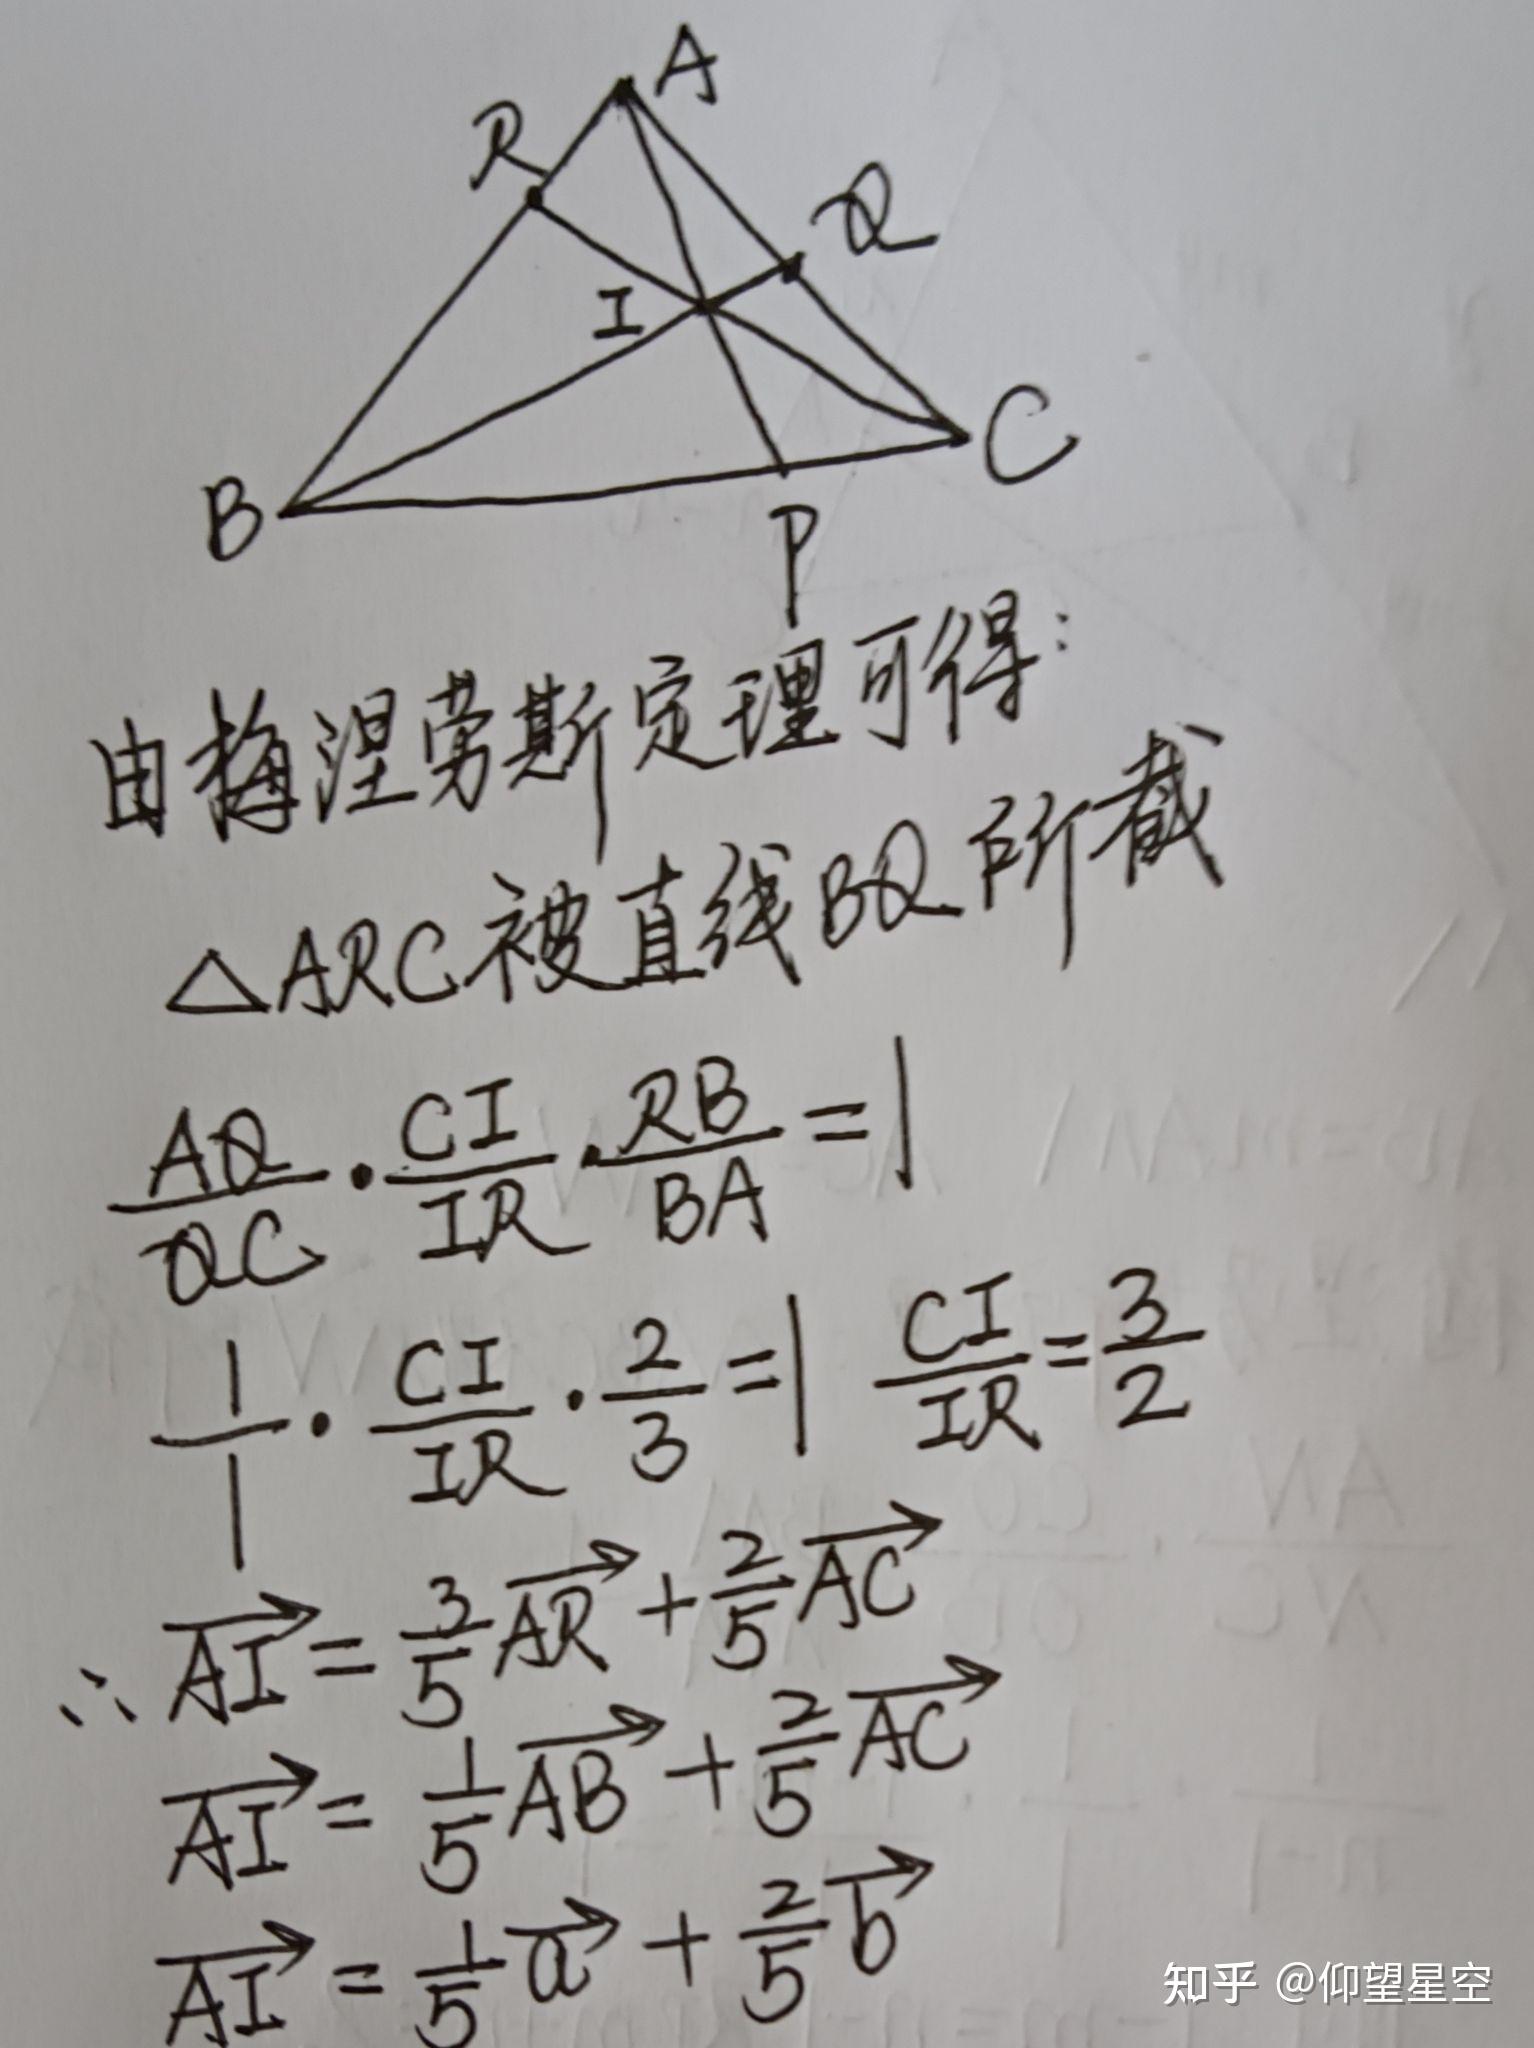 A
R
Q
I
B
C
P
由梅涅劳斯定理可得:
△ARC被直线BQ所截
AQ/QC · CI/IR · RB/BA = 1
1/1 · CI/IR · 2/3 = 1 CI/IR = 3/2
∴ \overrightarrow{AI} = 3/5 \overrightarrow{AR} + 2/5 \overrightarrow{AC}
\overrightarrow{AI} = 1/5 \overrightarrow{AB} + 2/5 \overrightarrow{AC}
\overrightarrow{AI} = 1/5 \overrightarrow{a} + 2/5 \overrightarrow{b}
知乎 @仰望星空